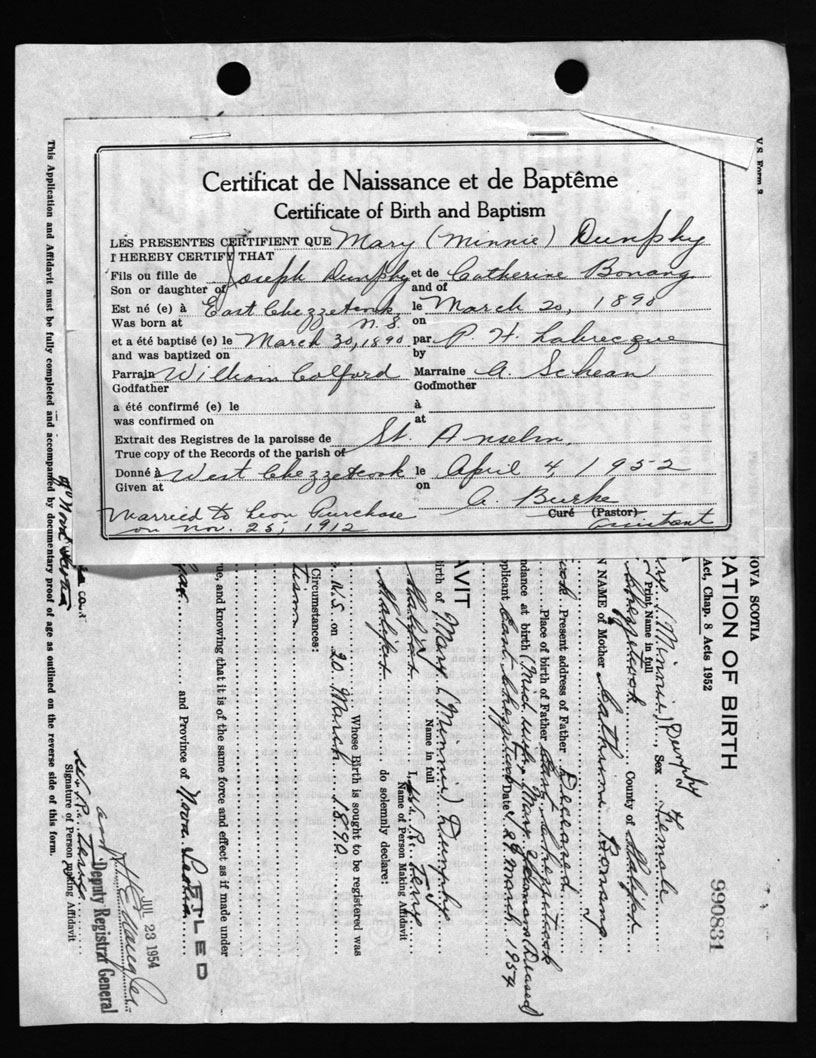 Certificat de Naissance et de Baptême
Certificate of Birth and Baptism
LES PRESENTES CERTIFIENT QUE Mary (Minnie) Dunphy
I HEREBY CERTIFY THAT
Fils ou fille de Joseph Dunphy et de Catherine Bonang
Son or daughter of and of
Est né (e) à East Chezzetcook le March 20, 1890
Was born at N.S. on
et a été baptisé (e) le March 30, 1890 par P. H. Labrecque
and was baptized on by
Parrain William Colford Marraine A. Schean
Godfather Godmother
a été confirmé (e) le à
was confirmed on at
Extrait des Registres de la paroisse de St. Anselm.
True copy of the Records of the parish of
Donné à West Chezzetcook le April 4 1952
Given at on
A. Burke
Married to Leon Purchase Curé (Pastor)
on Nov. 25, 1912 Assistant
V.S. Form 2
990831
NOVA SCOTIA
RATION OF BIRTH
Act, Chap. 8 Acts 1952
(Minnie) Dunphy, Sex Female
Print Name in full
Chezzetcook County of Halifax
N NAME of Mother Catherine Bonang
Present address of Father Deceased
Place of birth of Father East Chezzetcook
ndance at birth (Mid wife, Mary (Deceased)
pplicant East Chezzetcook Date 29 March 1954
AVIT
irth of Mary (Minnie) Dunphy
Name in full
Halifax I,
Name of Person Making Affidavit
Halifax do solemnly declare:
Whose Birth is sought to be registered was
N.S. on 20 March 1890
Circumstances:
ue, and knowing that it is of the same force and effect as if made under
and Province of Nova Scotia
FILED
JUL 23 1954
Deputy Registrar General
Signature of Person making Affidavit
of Nova Scotia
This Application and Affidavit must be fully completed and accompanied by documentary proof of age as outlined on the reverse side of this form.